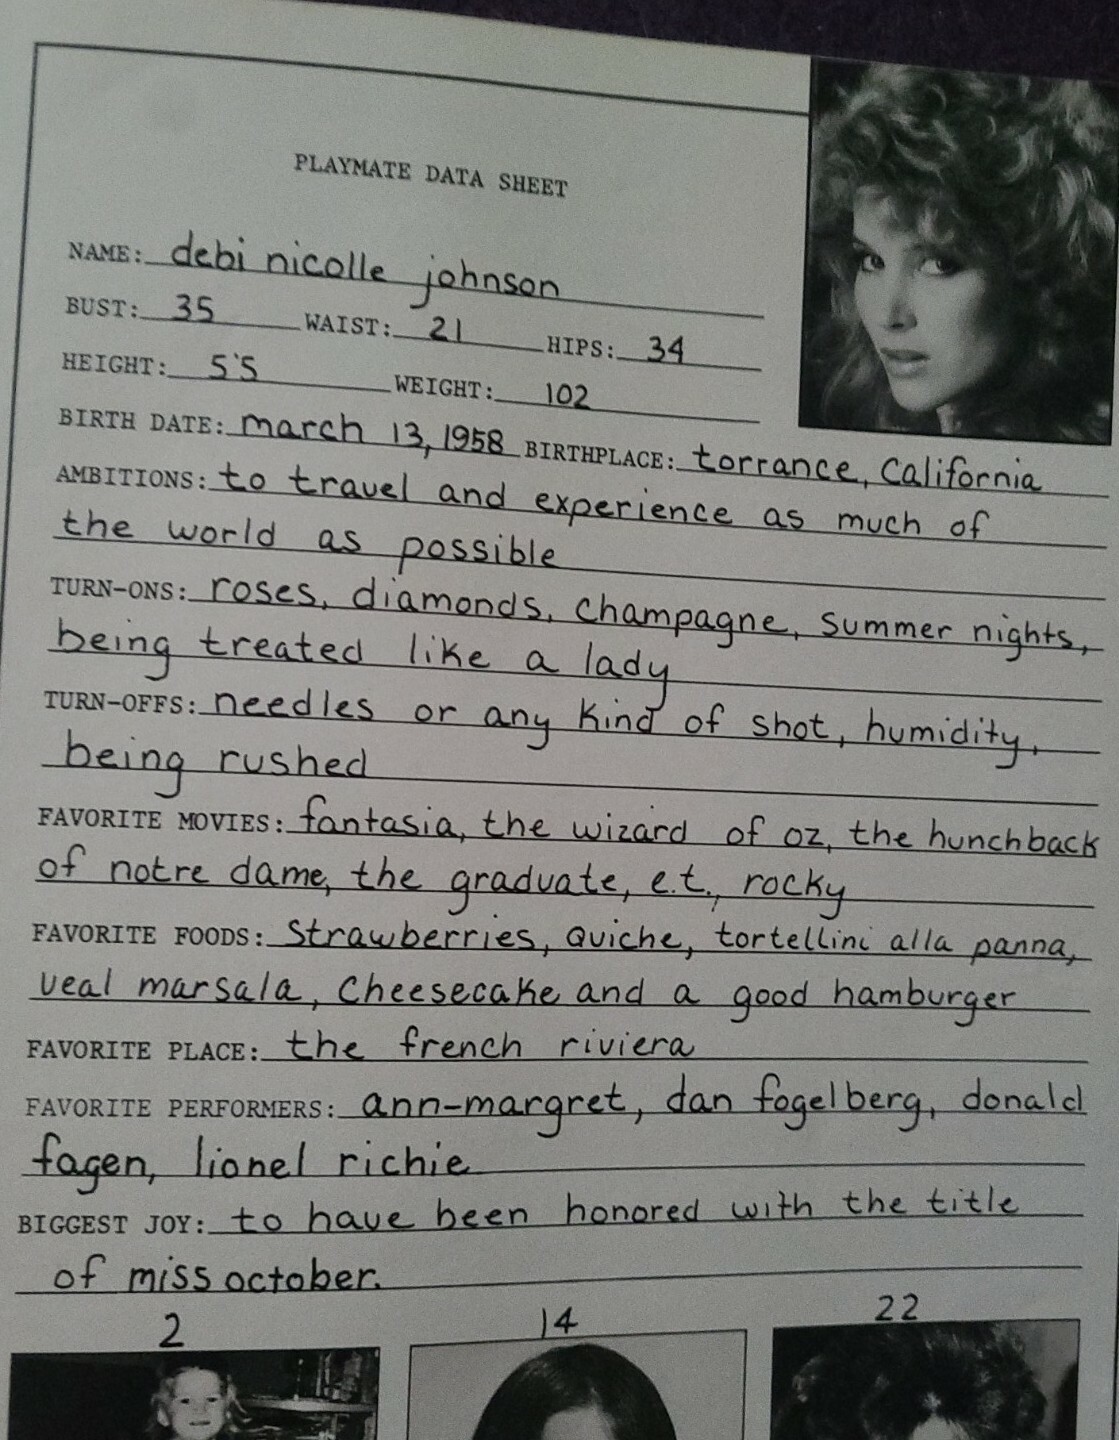 PLAYMATE DATA SHEET
NAME: debi nicolle johnson
BUST: 35 WAIST: 21 HIPS: 34
HEIGHT: 5'5 WEIGHT: 102
BIRTH DATE: march 13, 1958 BIRTHPLACE: torrance, California
AMBITIONS: to travel and experience as much of
the world as possible
TURN-ONS: roses, diamonds, champagne, summer nights,
being treated like a lady
TURN-OFFS: needles or any kind of shot, humidity,
being rushed
FAVORITE MOVIES: fantasia, the wizard of oz, the hunchback
of notre dame, the graduate, e.t., rocky
FAVORITE FOODS: strawberries, quiche, tortellini alla panna,
veal marsala, cheesecake and a good hamburger
FAVORITE PLACE: the french riviera
FAVORITE PERFORMERS: ann-margret, dan fogelberg, donald
fagen, lionel richie
BIGGEST JOY: to have been honored with the title
of miss october.
2 14 22